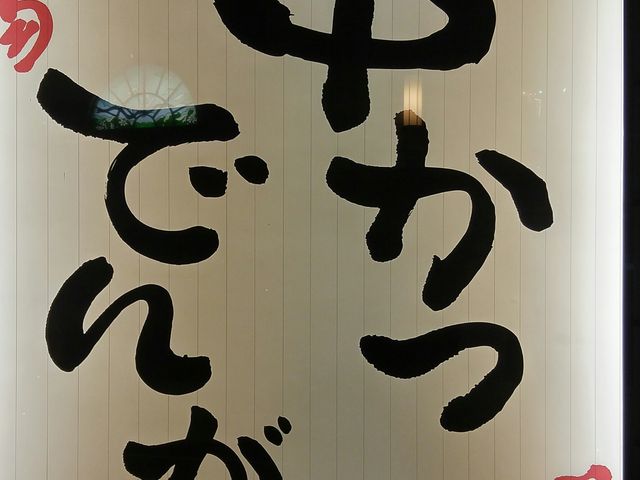 串かつ
でんが